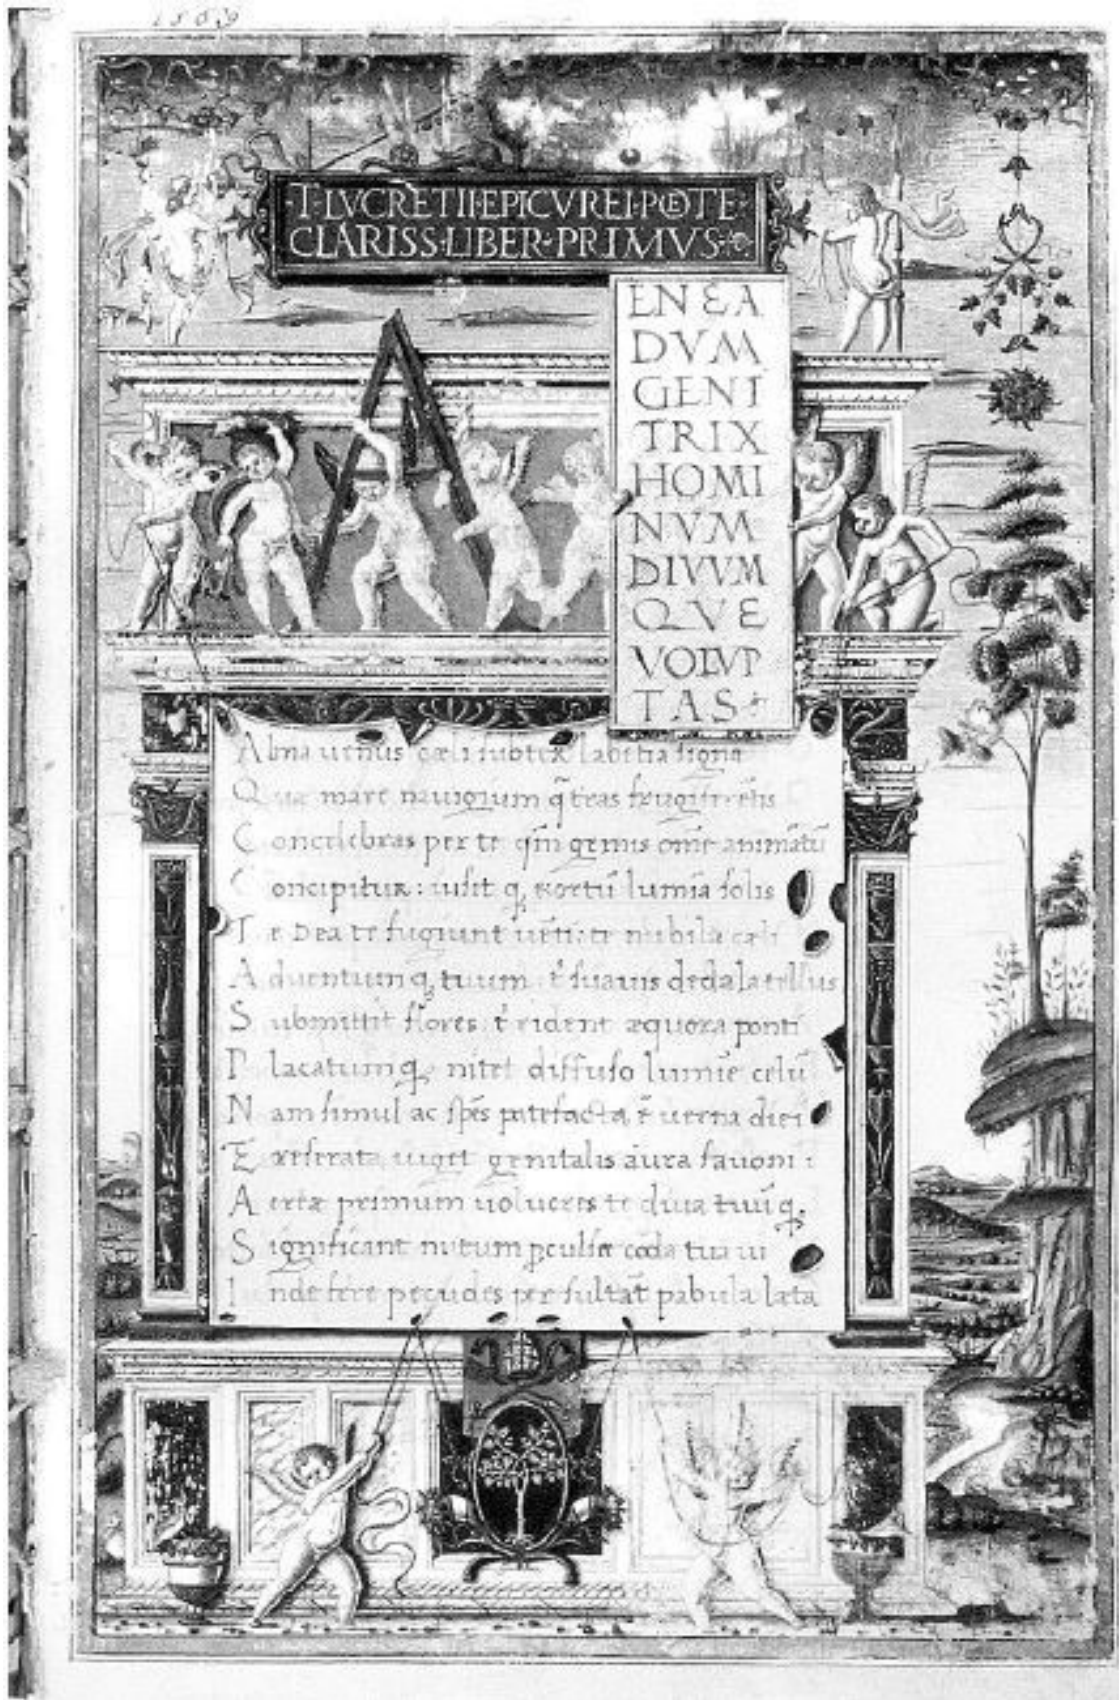 1569
·T·LVCRETII·EPICVREI·POETE·
CLARISS·LIBER·PRIMVS·
A
EN EA
DVM
GENI
TRIX
HOMI
NVM
DIVVM
QVE
VOLVP
TAS
Alma uenus cæli subter labentia signa
Quæ mare nauigium q̃ tẽras frugiferẽtis
Concelebras per te qm̃ genus om̃e animãtũ
Concipitur: uisit q̨ exortũ lumina solis
Te Dea te fugiunt uẽti: te nubila cæli
Aduentum q̨ tuum: t̃ suauis dedala tellus
Submittit flores: t̃ rident æquora ponti
Placatum q̨ nitet diffuso lumĩe celũ
Nam simul ac spẽs patefacta ẽ uerna diei
Et reserata uiget genitalis aura fauoni:
Aeriæ primum uolucres te diua tuũ q̨
Significant nitum pculsæ corda tua ui
Inde feræ pecudes per sultãt pabula læta